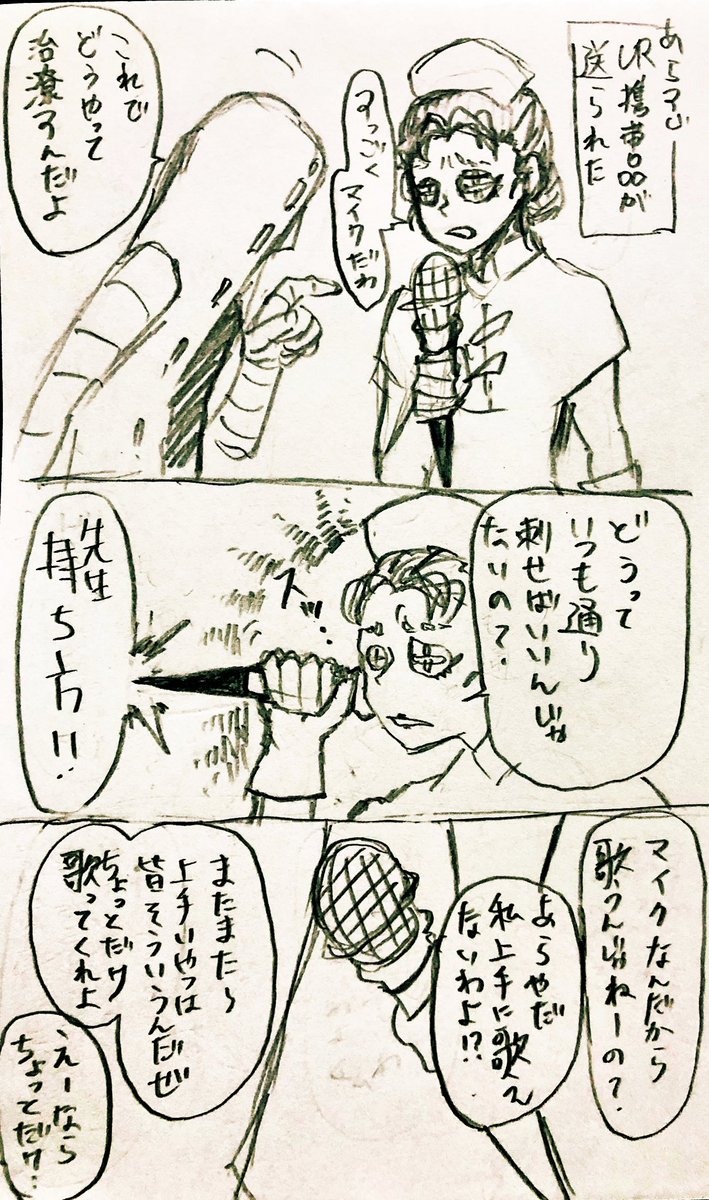 あらすじ
UR携帯品が
送られた
すっごく
マイクだわ
これで
どうやって
治療すんだよ
どうって
いつも通り
刺せばいいんじゃ
ないの?
スッ…
先生
持ち方!!
マイクなんだから
歌うんじゃねーの?
あらやだ
私上手に歌え
ないわよ!?
またまた~
上手いやつは
皆そういうんだぜ
ちょっとだけ
歌ってくれよ
えーなら
ちょっとだけ…